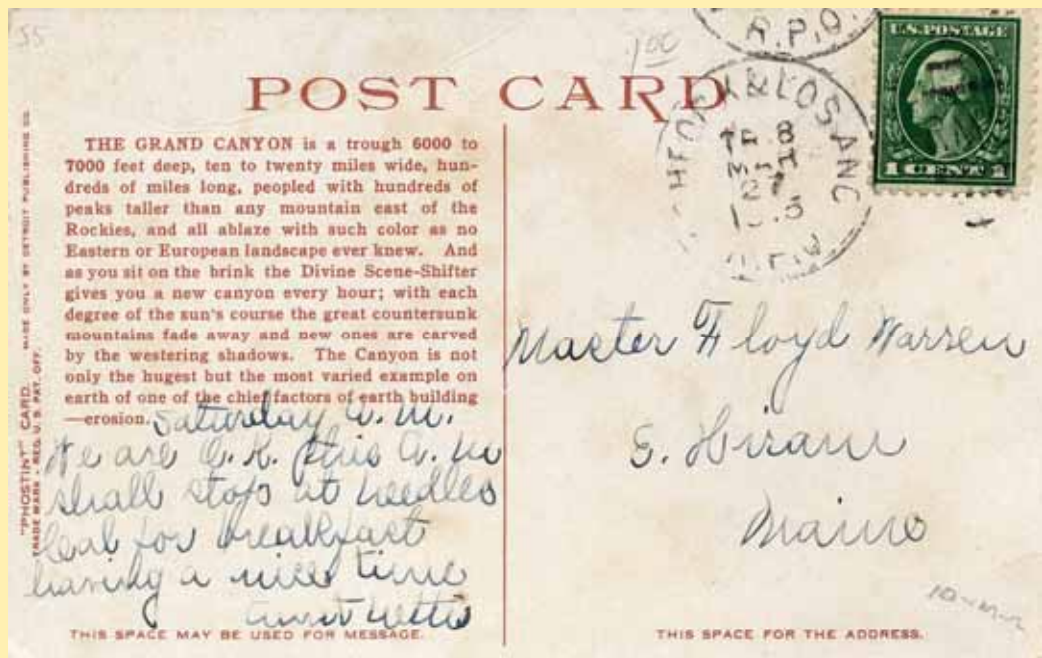 55
1.00
R.P.O.
U.S. POSTAGE
1 CENT 1
POST CARD
& LOS ANG
TR 8
MAR
27
R.P.O.
THE GRAND CANYON is a trough 6000 to
7000 feet deep, ten to twenty miles wide, hun-
dreds of miles long, peopled with hundreds of
peaks taller than any mountain east of the
Rockies, and all ablaze with such color as no
Eastern or European landscape ever knew. And
as you sit on the brink the Divine Scene-Shifter
gives you a new canyon every hour; with each
degree of the sun's course the great countersunk
mountains fade away and new ones are carved
by the westering shadows. The Canyon is not
only the hugest but the most varied example on
earth of one of the chief factors of earth building
—erosion.
Saturday A.M.
We are O.K. this A.M
shall stop at Needles
Cal for breakfast
having a nice time
Aunt Nettie
Master Floyd Warren
E. Hiram
Maine
"PHOSTINT" CARD. MADE ONLY BY DETROIT PUBLISHING CO.
TRADE MARK - REG. U.S. PAT. OFF.
THIS SPACE MAY BE USED FOR MESSAGE.
THIS SPACE FOR THE ADDRESS.